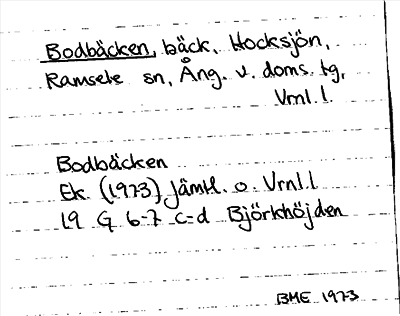 Bodbäcken, bäck, Hocksjön,
Ramsele sn, Ång. v. doms. tg,
Vrnl. l.
Bodbäcken
Ek (1973) Jämtl. o. Vrnl. l
19 G 6-7 c-d Björkhöjden
BME 1973